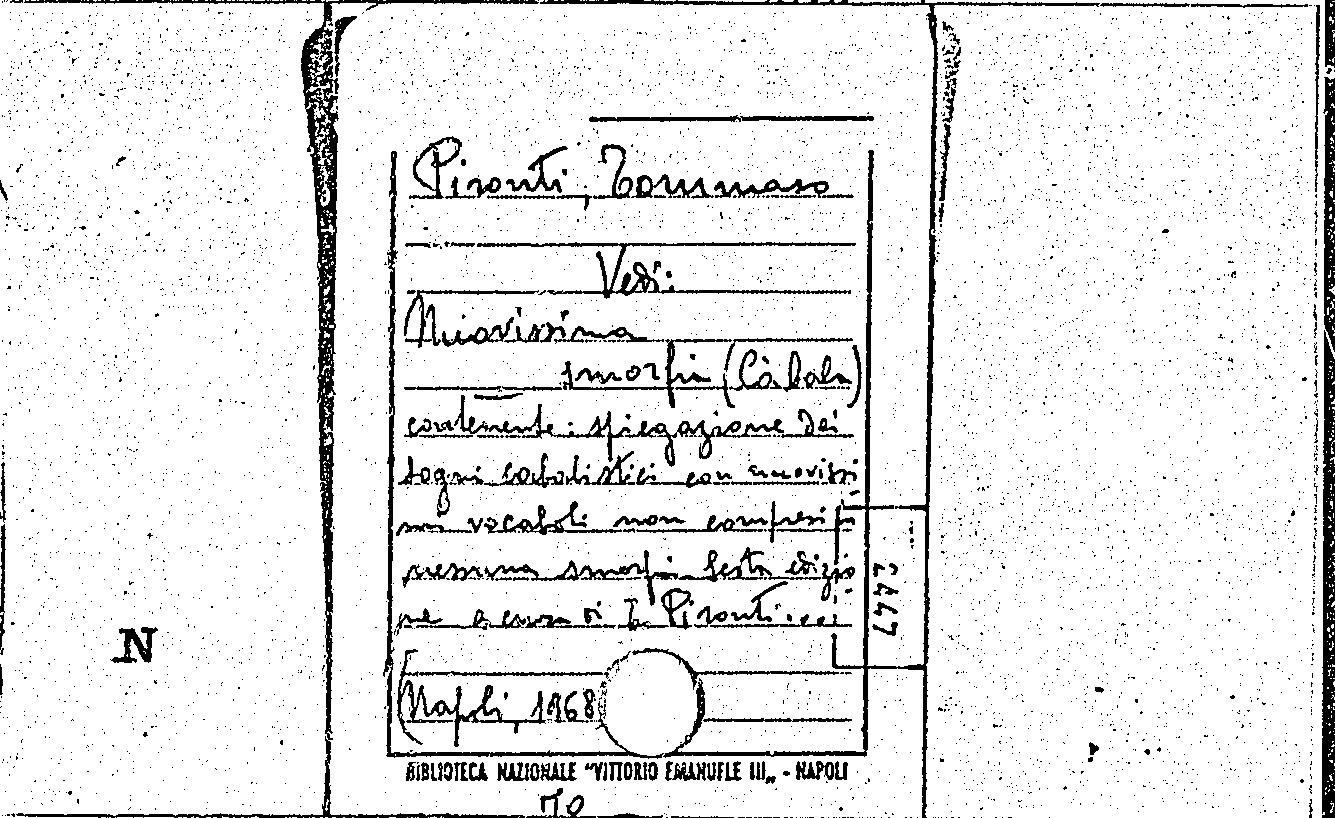 Pironti, Tommaso
Vedi:
Nuovissima
smorfia (Càbala)
contenente: spiegazione dei
sogni cabalistici con nuovissi
mi vocaboli non compresi in
nessuna smorfia. Sesta edizio
ne a cura di T. Pironti....
(Napoli, 1968
BIBLIOTECA NAZIONALE "VITTORIO EMANUELE III„ - NAPOLI
N